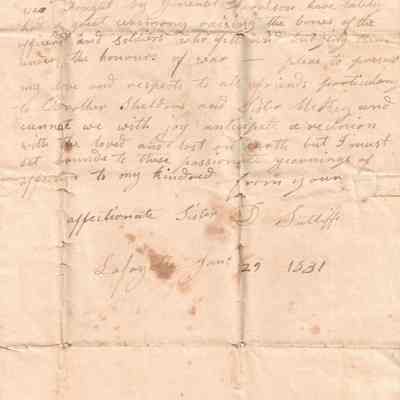 was fought by General Harrison have lately
had a great ceremony raising the bones of the
officers and soldiers who fell and burying them
under the honours of war — please to present
my love and respects to all friends particularly
to Brother Sheldons and Sister and
cannot we with joy anticipate a reunion
with the loved and lost on earth but I must
set bounds to these passionate yearnings of
affection to my kindred from your
affectionate Sister D Sutliffe
Lafayette Jany 29 1831